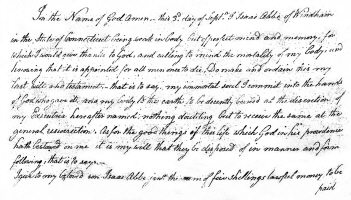 In the Name of God amen. this 3d. day of Sept. I Isaac Abbe of Windham
in the State of Connecticut being weak in body but of perfect mind and memory, for
which I would give thanks to God, and calling to mind the mortality of my Body, and
knowing that it is appointed for all men once to die. Do make and ordain this my
last will and Testament. that is to say, my immortal soul I commit into the hands
of God who gave it, and my body to the earth, to be decently buried at the discretion of
my Executrix hereafter named. nothing doubting but to receive the same at the
general resurrection. As for the good things of this life which God in his providence
hath bestowed on me it is my will that they be disposed of in manner and form
following, that is to say
I give to my Eldest son Isaac Abbe just the sum of five shillings lawful money to be
paid